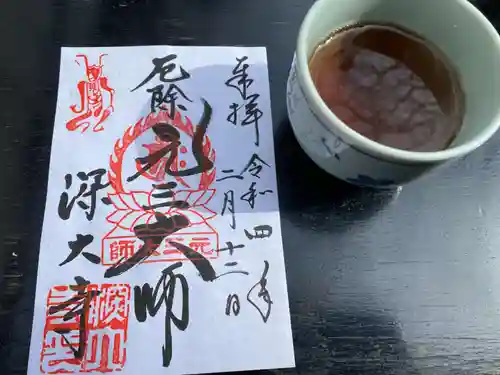 奉拝
令和四年
二月十二日
厄除
元三大師
深大寺
元三大師